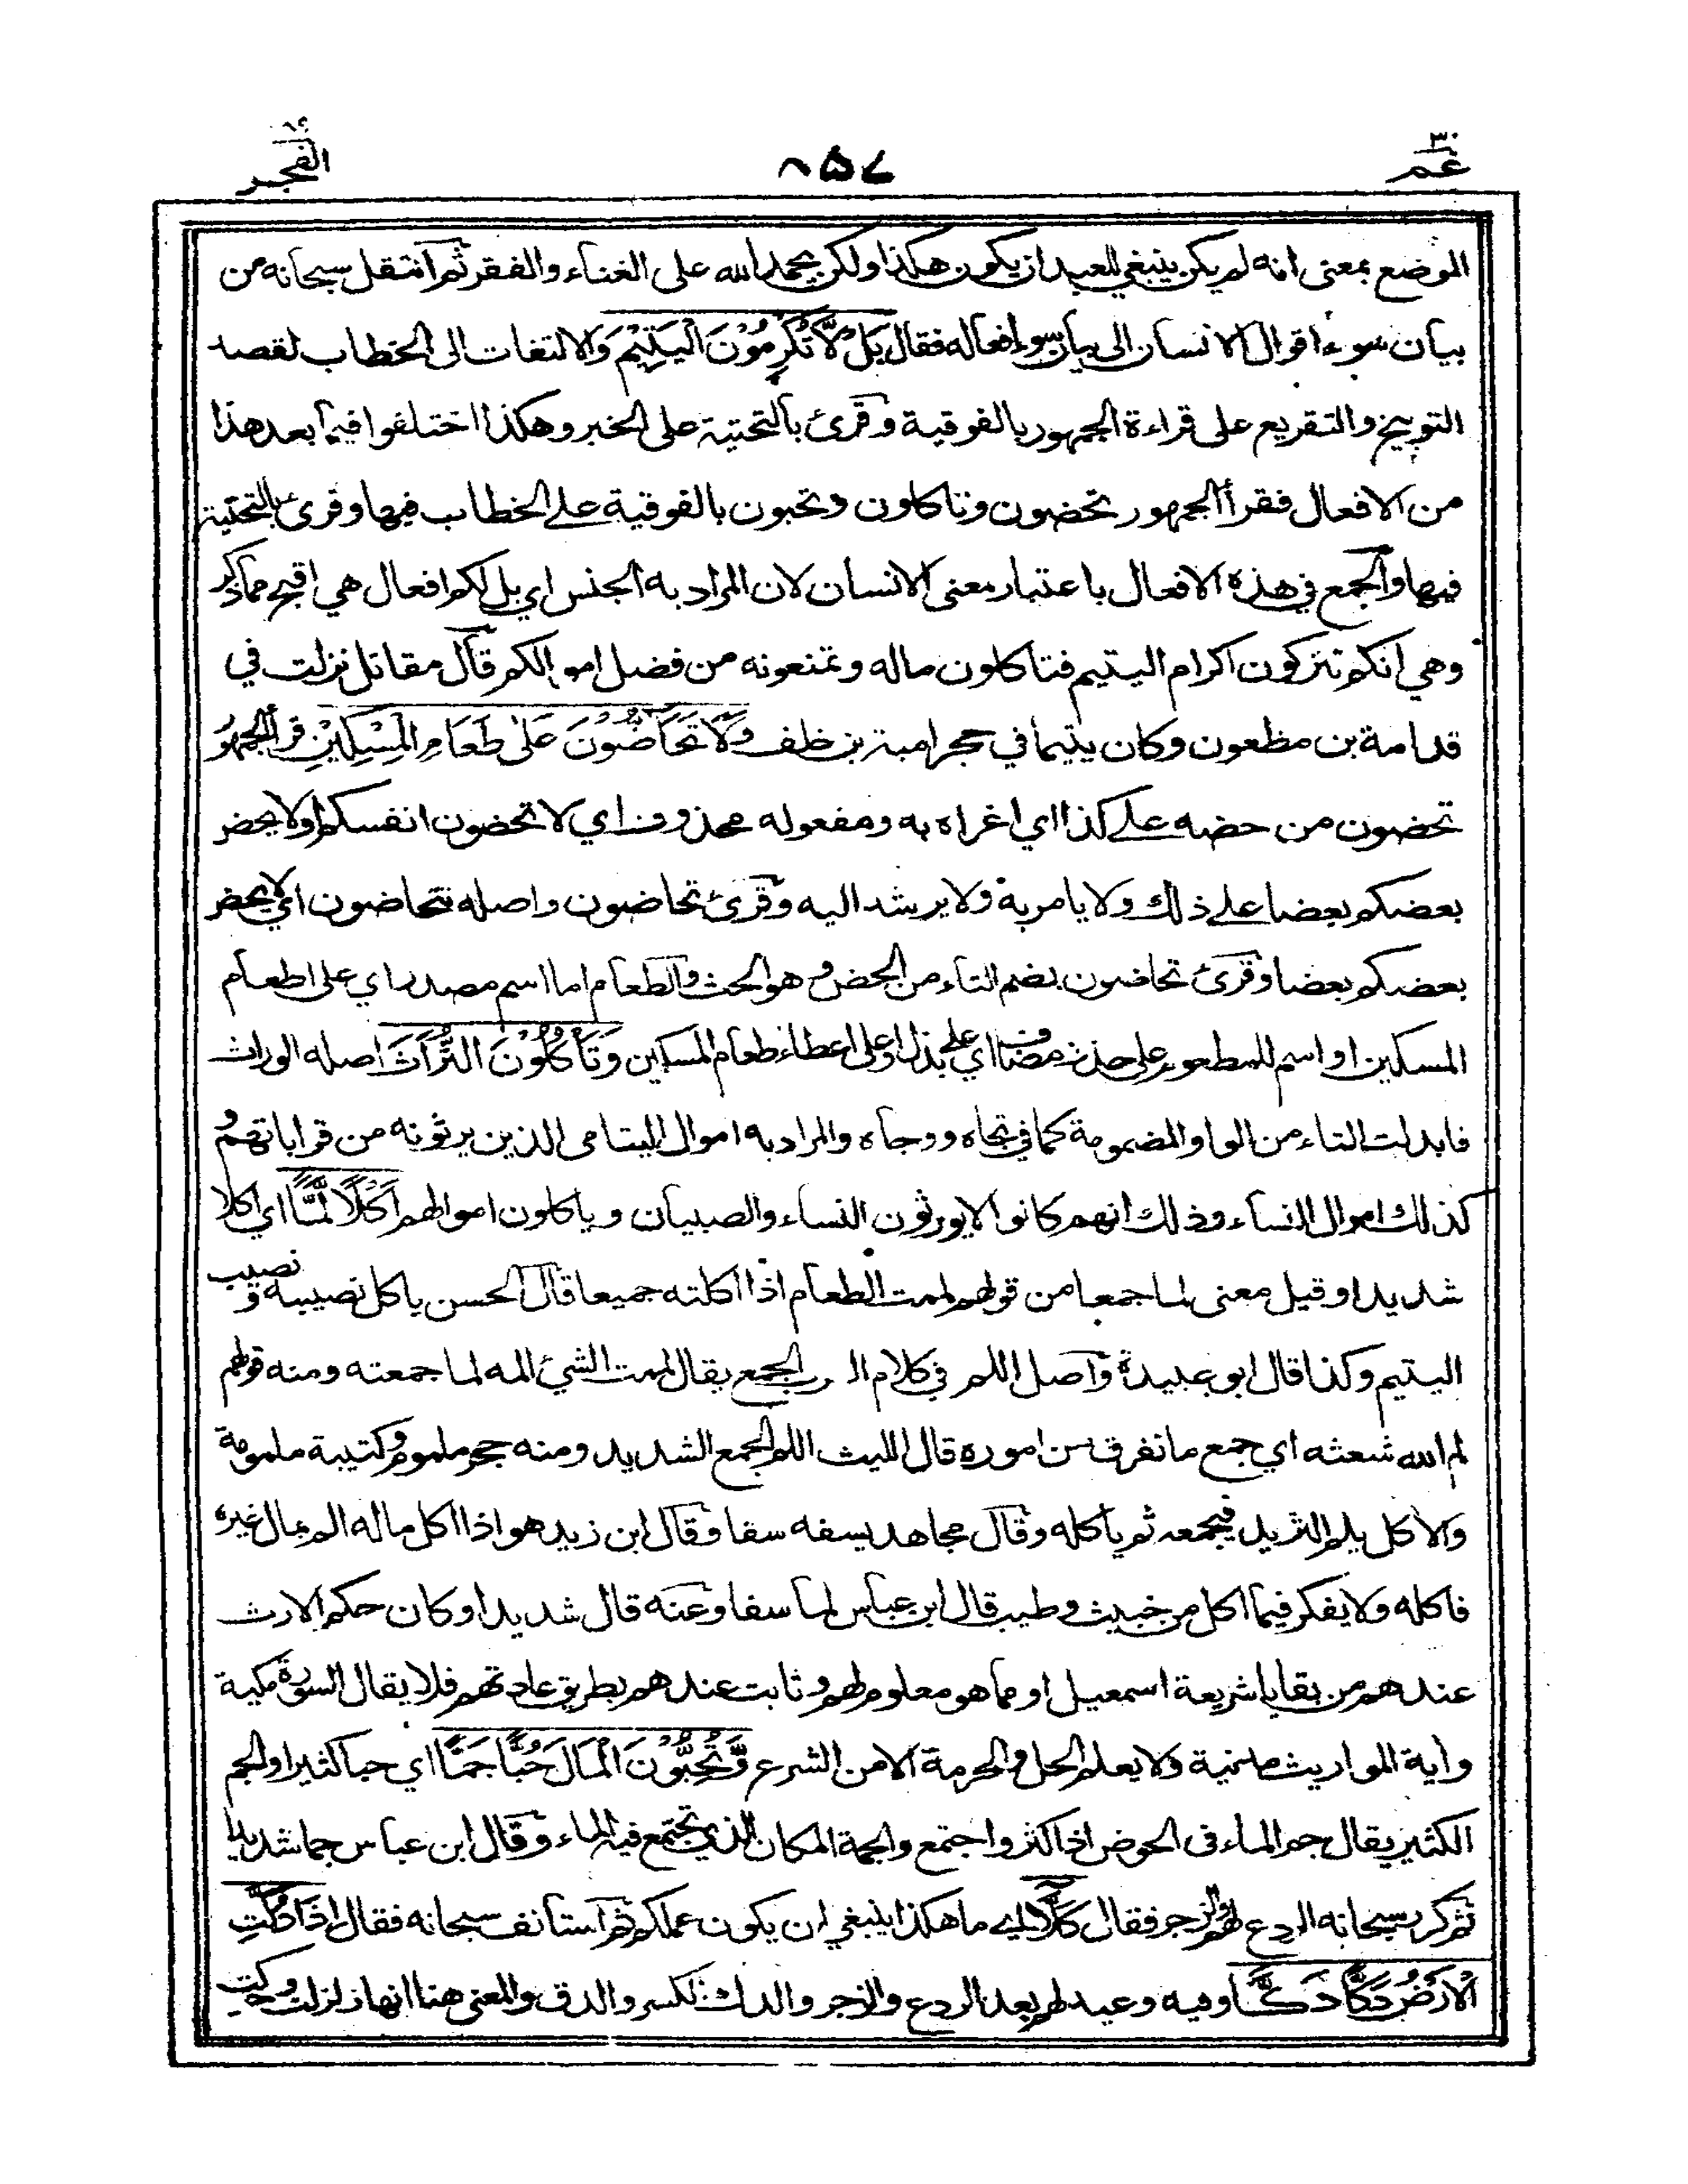 عم ٣٠
٨٥٧
الفجر ٨٩
الموضع بمعنى انه لم يكن ينبغي للعبد ان يكون هكذا ولكن يحمد الله على الغناء والفقر ثم انتقل سبحانه من
بيان سوء اقوال الانسان الى بيان سوء افعاله فقال بَلْ لَّا تُكْرِمُوْنَ الْيَتِيْمَ والالتفات الى الخطاب لقصد
التوبيخ والتقريع على قراءة الجمهور بالفوقية وقرئ بالتحتية على الخبر وهكذا اختلفوا فيما بعد هذا
من الافعال فقرأ الجمهور تحضون وتاكلون وتحبون بالفوقية على الخطاب فيها وقرئ بالتحتية
فيها والجمع في هذه الافعال باعتبار معنى الانسان لان المراد به الجنس اي بل لكم افعال هي اقبح مما ذكر
وهي انكم تتركون اكرام اليتيم فتاكلون ماله وتمنعونه من فضل اموالكم قال مقاتل نزلت في
قدامة بن مظعون وكان يتيما في حجر امية بن خلف وَلَا تَحَاضُّوْنَ عَلٰى طَعَامِ الْمِسْكِيْنِ قرأ الجمهور
تحضون من حضه على كذا اي اغراه به ومفعوله محذوف اي لا تحضون انفسكم او لا يحض
بعضكم بعضا على ذلك ولا يامر به ولا يرشد اليه وقرئ تحاضون واصله تتحاضون اي لا يحض
بعضكم بعضا وقرئ تحاضون بضم التاء من الحض وهو الحث والطعام اما اسم مصدر اي على اطعام
المسكين او اسم للمطعوم على حذف مضاف اي على بذل او على اعطاء طعام المسكين وَتَأْكُلُوْنَ التُّرَاثَ اصله الوراث
فابدلت التاء من الواو المضمومة كما في تجاه ووجاه والمراد به اموال اليتامى الذين يرثونه من قراباتهم و
كذلك اموال النساء وذلك انهم كانوا لا يورثون النساء والصبيان وياكلون اموالهم اَكْلًا لَّمًّا اي اكلا
شديدا وقيل معنى لما جمعا من قولهم لممت الطعام اذا اكلته جميعا قال الحسن ياكل نصيبه و نصيب
اليتيم وكذا قال ابو عبيدة واصل اللم في كلام الـ رب الجمع يقال لممت الشيئ المه لما جمعته ومنه قولهم
لم الله شعثه اي جمع ما تفرق من اموره قال الليث اللم الجمع الشديد ومنه حجر ملموم وكتيبة ملمومة
والاكل يلم الثريد فيجمعه ثم ياكله وقال مجاهد يسفه سفا وقال ابن زيد هو اذا اكل ماله الم بمال غيره
فاكله ولا يفكر فيما اكل من خبيث وطيب قال ابن عباس لما سفا وعنه قال شديدا وكان حكم الارث
عندهم من بقايا شريعة اسمعيل او مما هو معلوم لهم وثابت عندهم بطريق عادتهم فلا يقال السورة مكية
واية المواريث مدنية ولا يعلم الحل والحرمة الا من الشرع وَّتُحِبُّوْنَ الْمَالَ حُبًّا جَمًّا اي حبا كثيرا والجم
الكثير يقال جم الماء في الحوض اذا كثر واجتمع والجمة المكان الذي يجتمع فيه الماء وقال ابن عباس جما شديدا
ثم كرر سبحانه الردع لهم والزجر فقال كَلَّا اي ما هكذا ينبغي ان يكون عملكم ثم استانف سبحانه فقال اِذَا دُكَّتِ
الْاَرْضُ دَكًّا دَكًّا وفيه وعيد لهم بعد الردع والزجر والدك الكسر والدق والمعنى هنا انها زلزلت وحركت